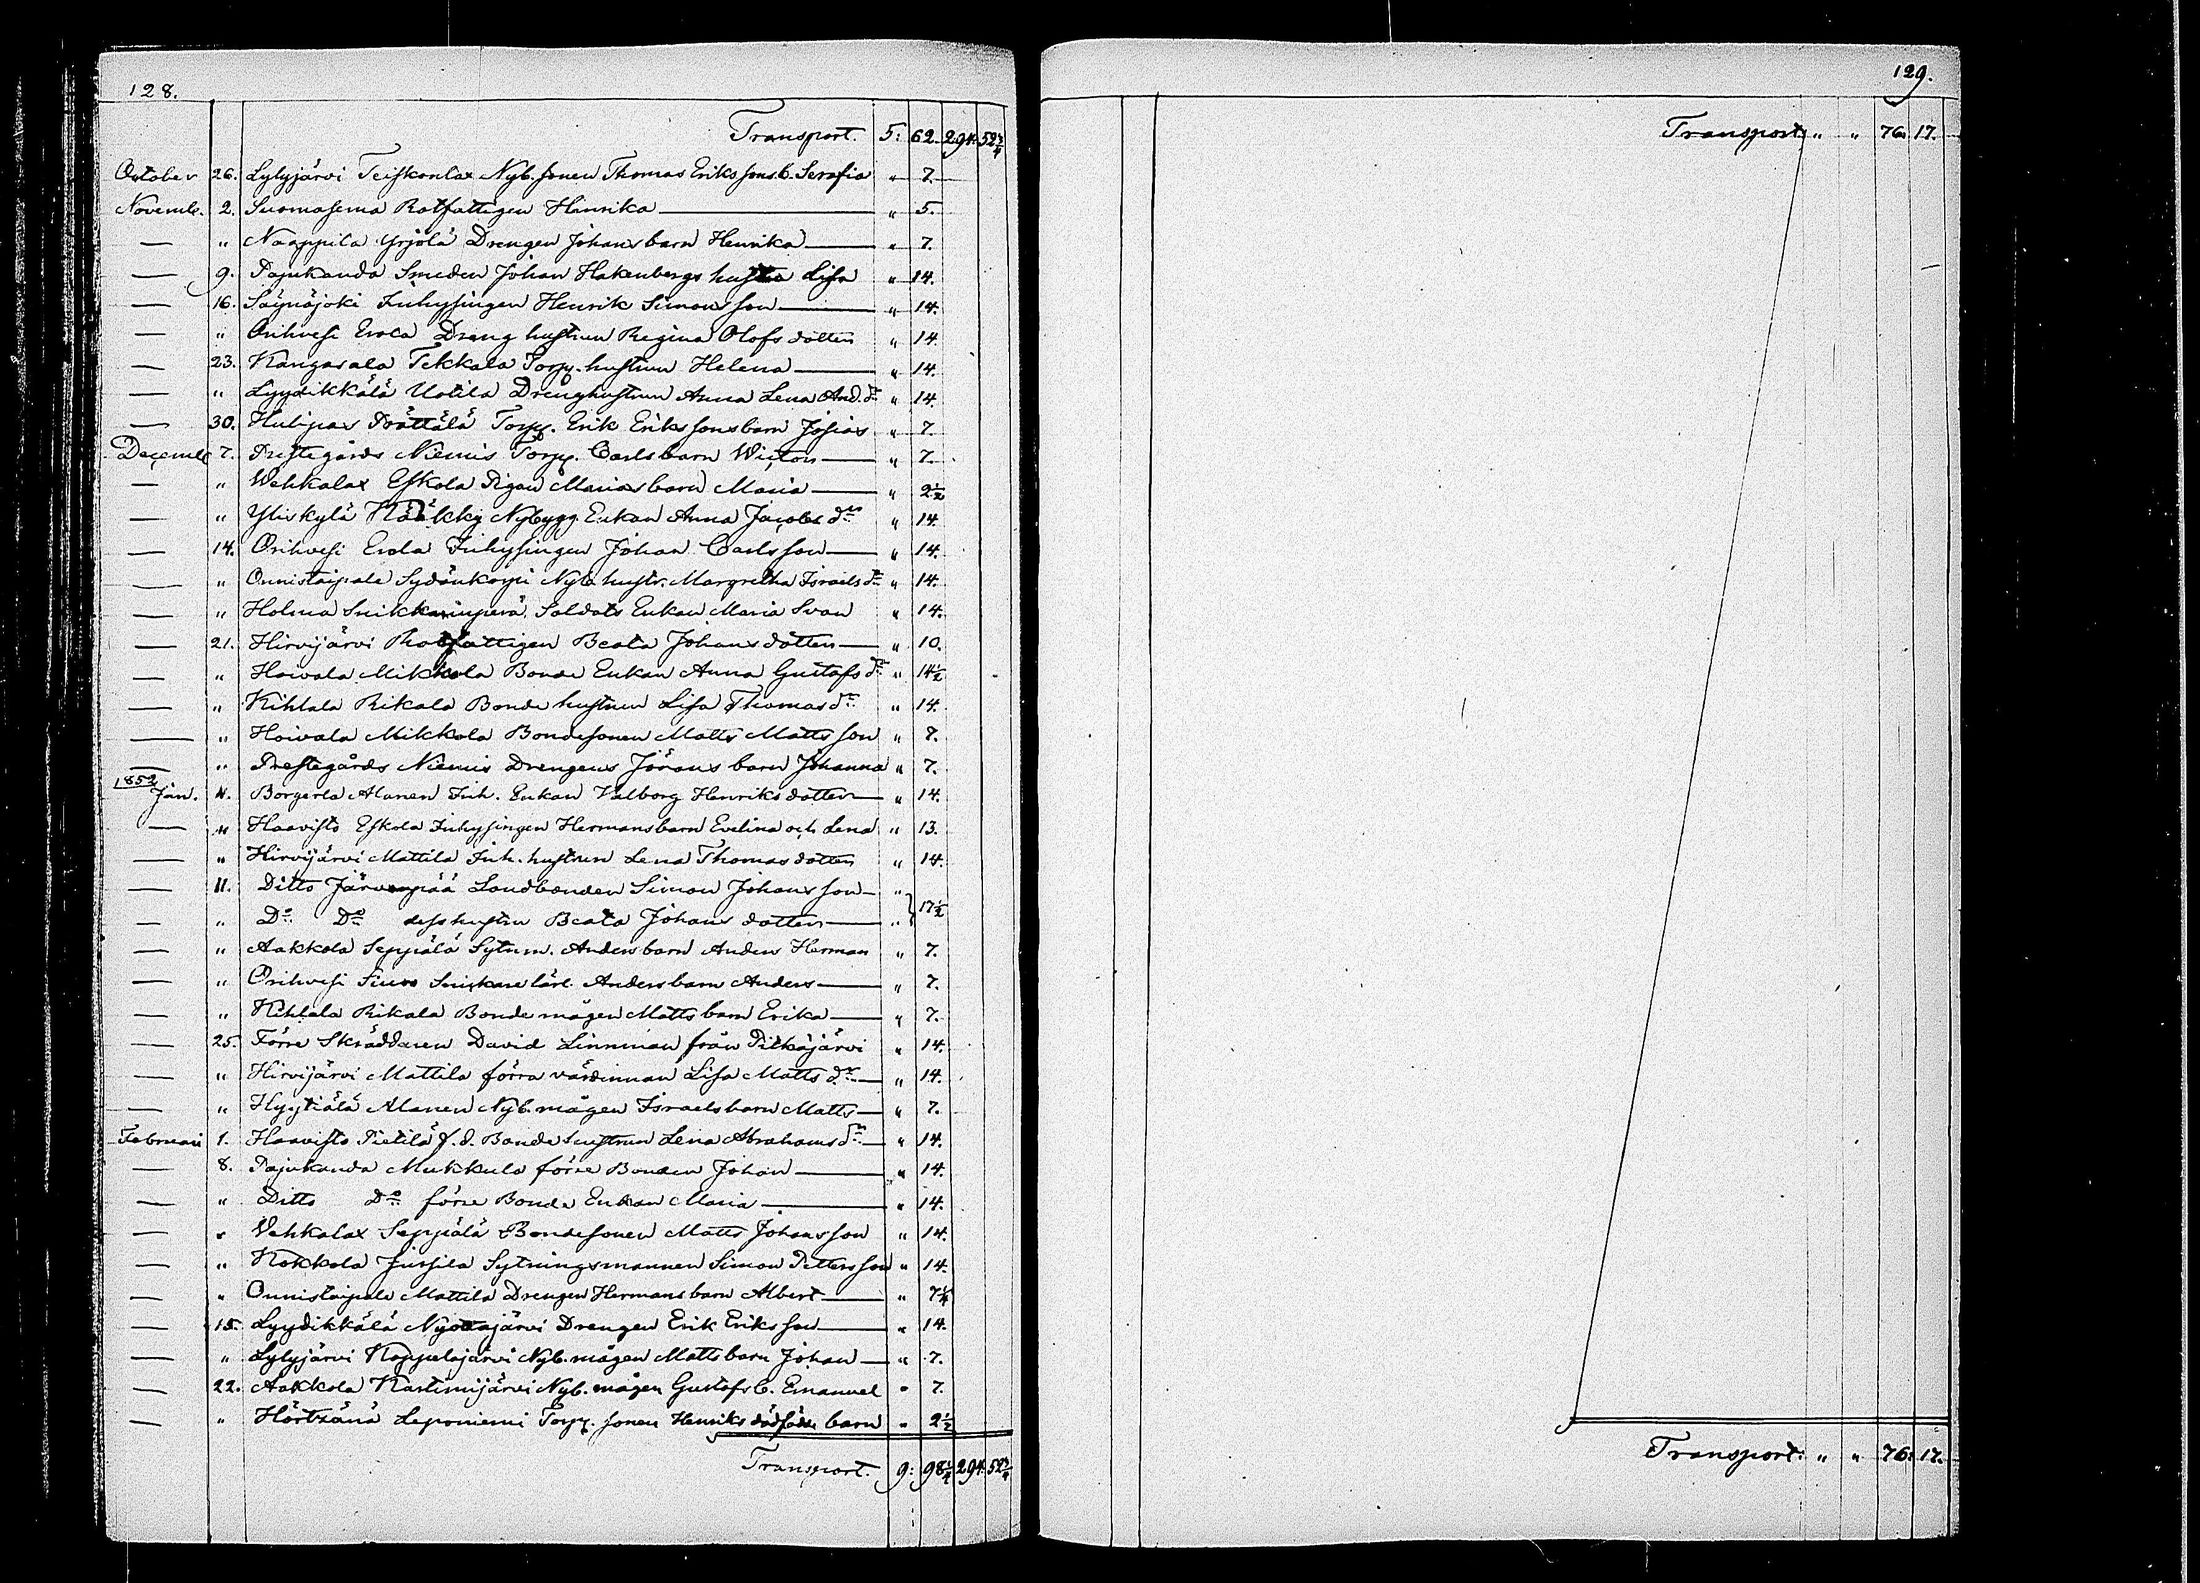 128.
Transport. 5: 62. 294. 52 3/4
October 26. Lylyjärvi Teiskonlax Nyb. sonen Thomas Erikssons b. Serafia " 7.
Novemb. 2. Suomasema Rotfattigen Henrika " 5.
— " Naappila Yrjölä Drengen Johans barn Henrika " 7.
— 9. Pajukanda Smeden Johan Hakenbergs hustru Lisa " 14.
— 16. Säynäjoki Inhysingen Henrik Simonsson " 14.
— " Orihvesi Erola Dreng hustrun Regina Olofsdotter " 14.
— 23. Kangasala Tekkala Torp. hustrun Helena " 14.
— " Lyydikkälä Uotila Dreng hustrun Anna Lena And. dr " 14.
— 30. Huhpax Torp. Erik Erikssons barn Josias " 7.
Decemb 7. Prestegårds Niemis Torp. Carls barn Victor " 7.
— " Wehkalax Eskola Pigan Marias barn Maria " 2 1/2
— " Yliskylä Näkky Nybygg. Enkan Anna Jacobs dr " 14.
— 14. Orihvesi Erola Inhysingen Johan Carlsson " 14.
— " Onnistaipale Sydänkorpi Nyb. hustr. Margretha Israels dr " 14.
— " Holma Snikkarinperä Soldats Enkan Maria Svan " 14.
— 21. Hirvijärvi Rotfattigen Beata Johansdotter " 10.
— " Hoivala Mikkola Bonde Enkan Anna Gustafs dr " 14 1/2
— " Kihlala Rikala Bonde hustrun Lisa Thomas dr " 14.
— " Hoivala Mikkola Bondesonen Matts Mattsson " 7.
— " Prestegårds Niemis Drengens Jörans barn Johanna " 7.
1852
Jan. 4. Borgerla Alanen Inh. Enkan Valborg Henriksdotter " 14.
— " Haavisto Eskola Inhysingen Hermans barn Evelina och Lena " 13.
— " Hirvijärvi Mattila Inh. hustrun Lena Thomasdotter " 14.
— 11. Ditto Järvenpää Landbonden Simon Johansson "
— " Do Do dess hustru Beata Johansdotter " } 17 1/2
— " Aakkola Seppälä Sytn. m. Anders barn Anders Herman " 7.
— " Orihvesi Snickare lärl. Anders barn Anders " 7.
— " Kihlala Rikala Bonde mågen Matts barn Erika " 7.
— 25. Förre Skräddaren David Linnman från Pitkäjärvi " 14.
— " Hirvijärvi Mattila förra värdinnan Lisa Matts dr " 14.
— " Hyytiälä Alanen Nyb. mågen Israels barn Matts " 7.
Februari 1. Haavisto Pietilä f. d. Bonde hustrun Lena Abrahams dr " 14.
— 8. Pajukanda Mukkula förre Bonden Johan " 14.
— " Ditto Do förre Bonde Enkan Maria " 14.
— " Vehkalax Seppälä Bondesonen Matts Johansson " 14.
— " Kokkola Jussila Sytningsmannen Simon Pettersson " 14.
— " Onnistaipale Mattila Drengen Hermans barn Albert " 7 1/4
— 15. Lyydikkälä Nyottajärvi Drengen Erik Eriksson " 14.
— " Lylyjärvi Koppelojärvi Nyb. mågen Matts barn Johan " 7.
— 22. Aakkola Kastimijärvi Nyb. mågen Gustafs b. Emanuel " 7.
— " Hörtsänä Leponiemi Torp. sonen Henriks dödfödde barn " 2 1/2
Transport. 9: 98 1/4 294. 52 3/4
129.
Transport: " " 76. 17.
Transport: " " 76. 17.